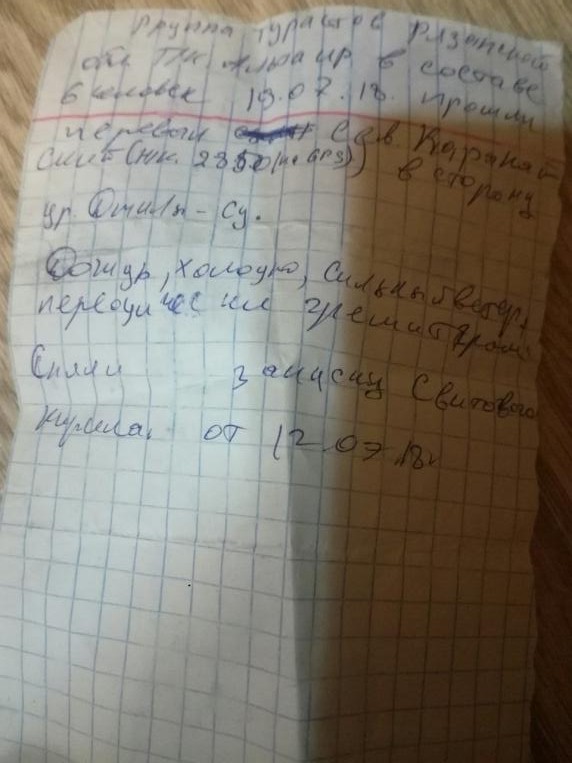 Группа туристов Рязанской
обл ТКК Альтаир в составе
6 человек 19.07.18. прошли
перевал Сев. Каракая
Скит (нк. 2850 (по GPS)) в сторону
ур. Джилы-су.
Дождь, холодно, сильный ветер,
периодически гремит гром
Сняли записку Свитового
Кирила. от 12.07.18г